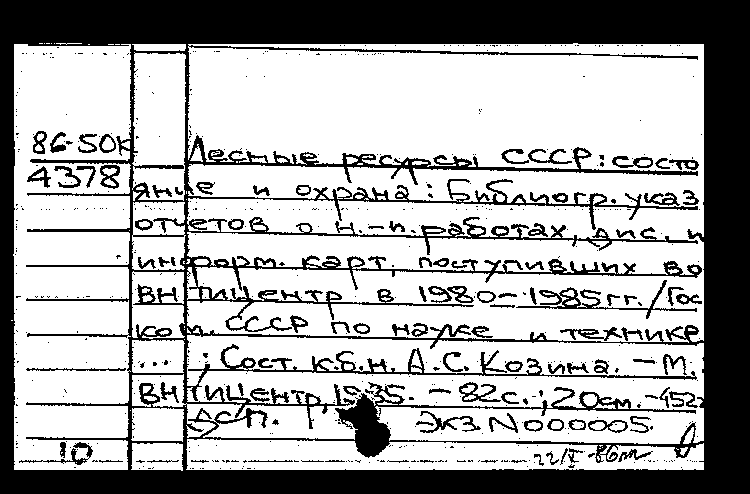 86-50К
4378
Лесные ресурсы СССР: состо
яние и охрана: Библиогр. указ.
отчетов о н.-и. работах, дис. и
информ. карт, поступивших во
ВНТИЦентр в 1980-1985гг. / Гос
ком. СССР по науке и технике
... ; Сост. к.б.н. А.С. Козина. - М.:
ВНТИЦентр, 1985. - 82с.; 20см. -452
ДСП. Экз. N000005.
10